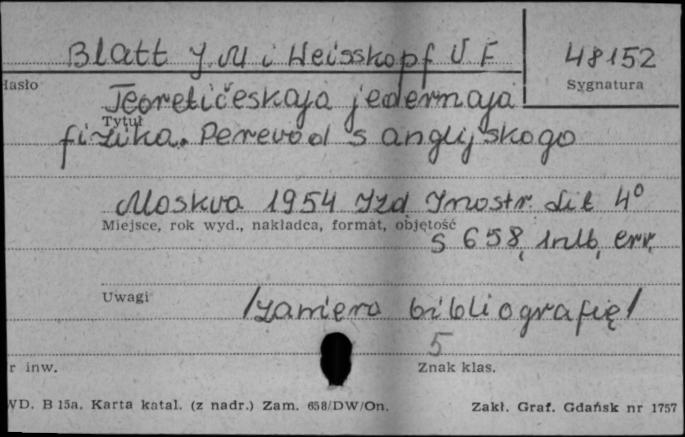 Blatt J. M i Weisskopf V F
48152
Hasło
Sygnatura
Teoretičeskaja jedernaja
Tytuł
fizika. Perevod s anglijskogo
Moskva 1954 Izd. Inostr. Lit 4°
Miejsce, rok wyd., nakładca, format, objętość
s 658, 1nlb, err.
Uwagi
/zawiera bibliografię/
5
r inw.
Znak klas.
WD. B 15a. Karta katal. (z nadr.) Zam. 658/DW/On.
Zakł. Graf. Gdańsk nr 1757